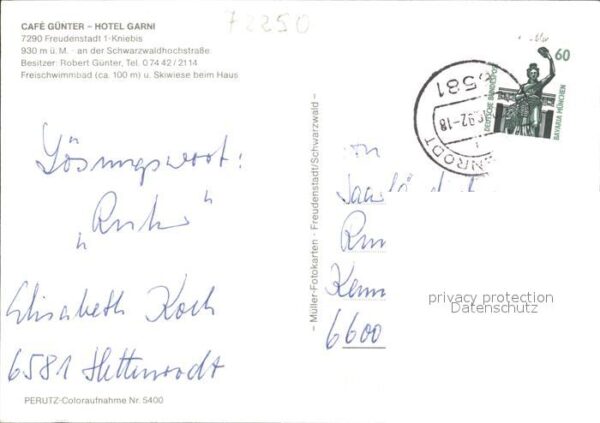 72250
CAFÉ GÜNTER – HOTEL GARNI
7290 Freudenstadt 1-Kniebis
930 m ü. M. · an der Schwarzwaldhochstraße
Besitzer: Robert Günter, Tel. 0 74 42 / 21 14
Freischwimmbad (ca. 100 m) u. Skiwiese beim Haus
Lösungswort:
„Risiko"
Elisabeth Koch
6581 Hettenrodt
PERUTZ-Coloraufnahme Nr. 5400
– Müller-Fotokarten · Freudenstadt/Schwarzwald –
60
DEUTSCHE BUNDESPOST
BAVARIA MÜNCHEN
6581
92-18
ENRODT
an
Run
Kenn
6600
privacy protection
Datenschutz